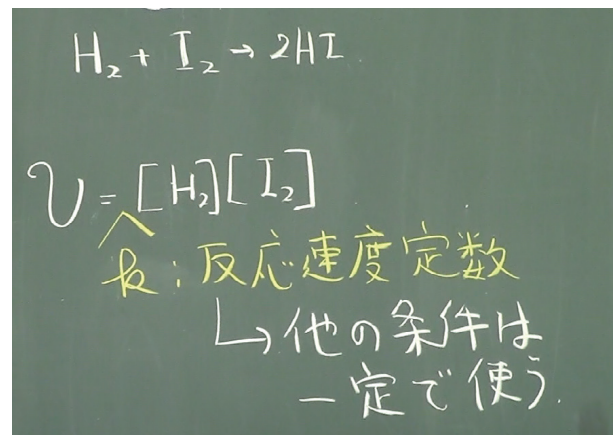 H₂ + I₂ → 2HI
v = [H₂][I₂]
k : 反応速度定数
↳ 他の条件は
一定で使う.